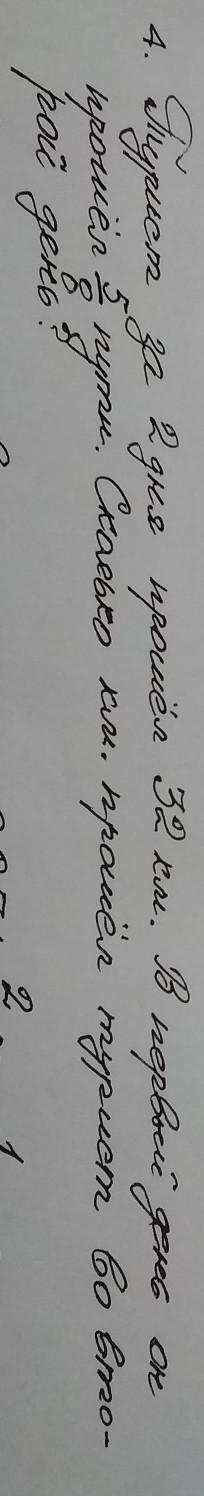 4. Турист за 2 дня прошёл 32 км. В первый день он
прошёл 5/8 пути. Сколько км. прошёл турист во вто-
рой день?